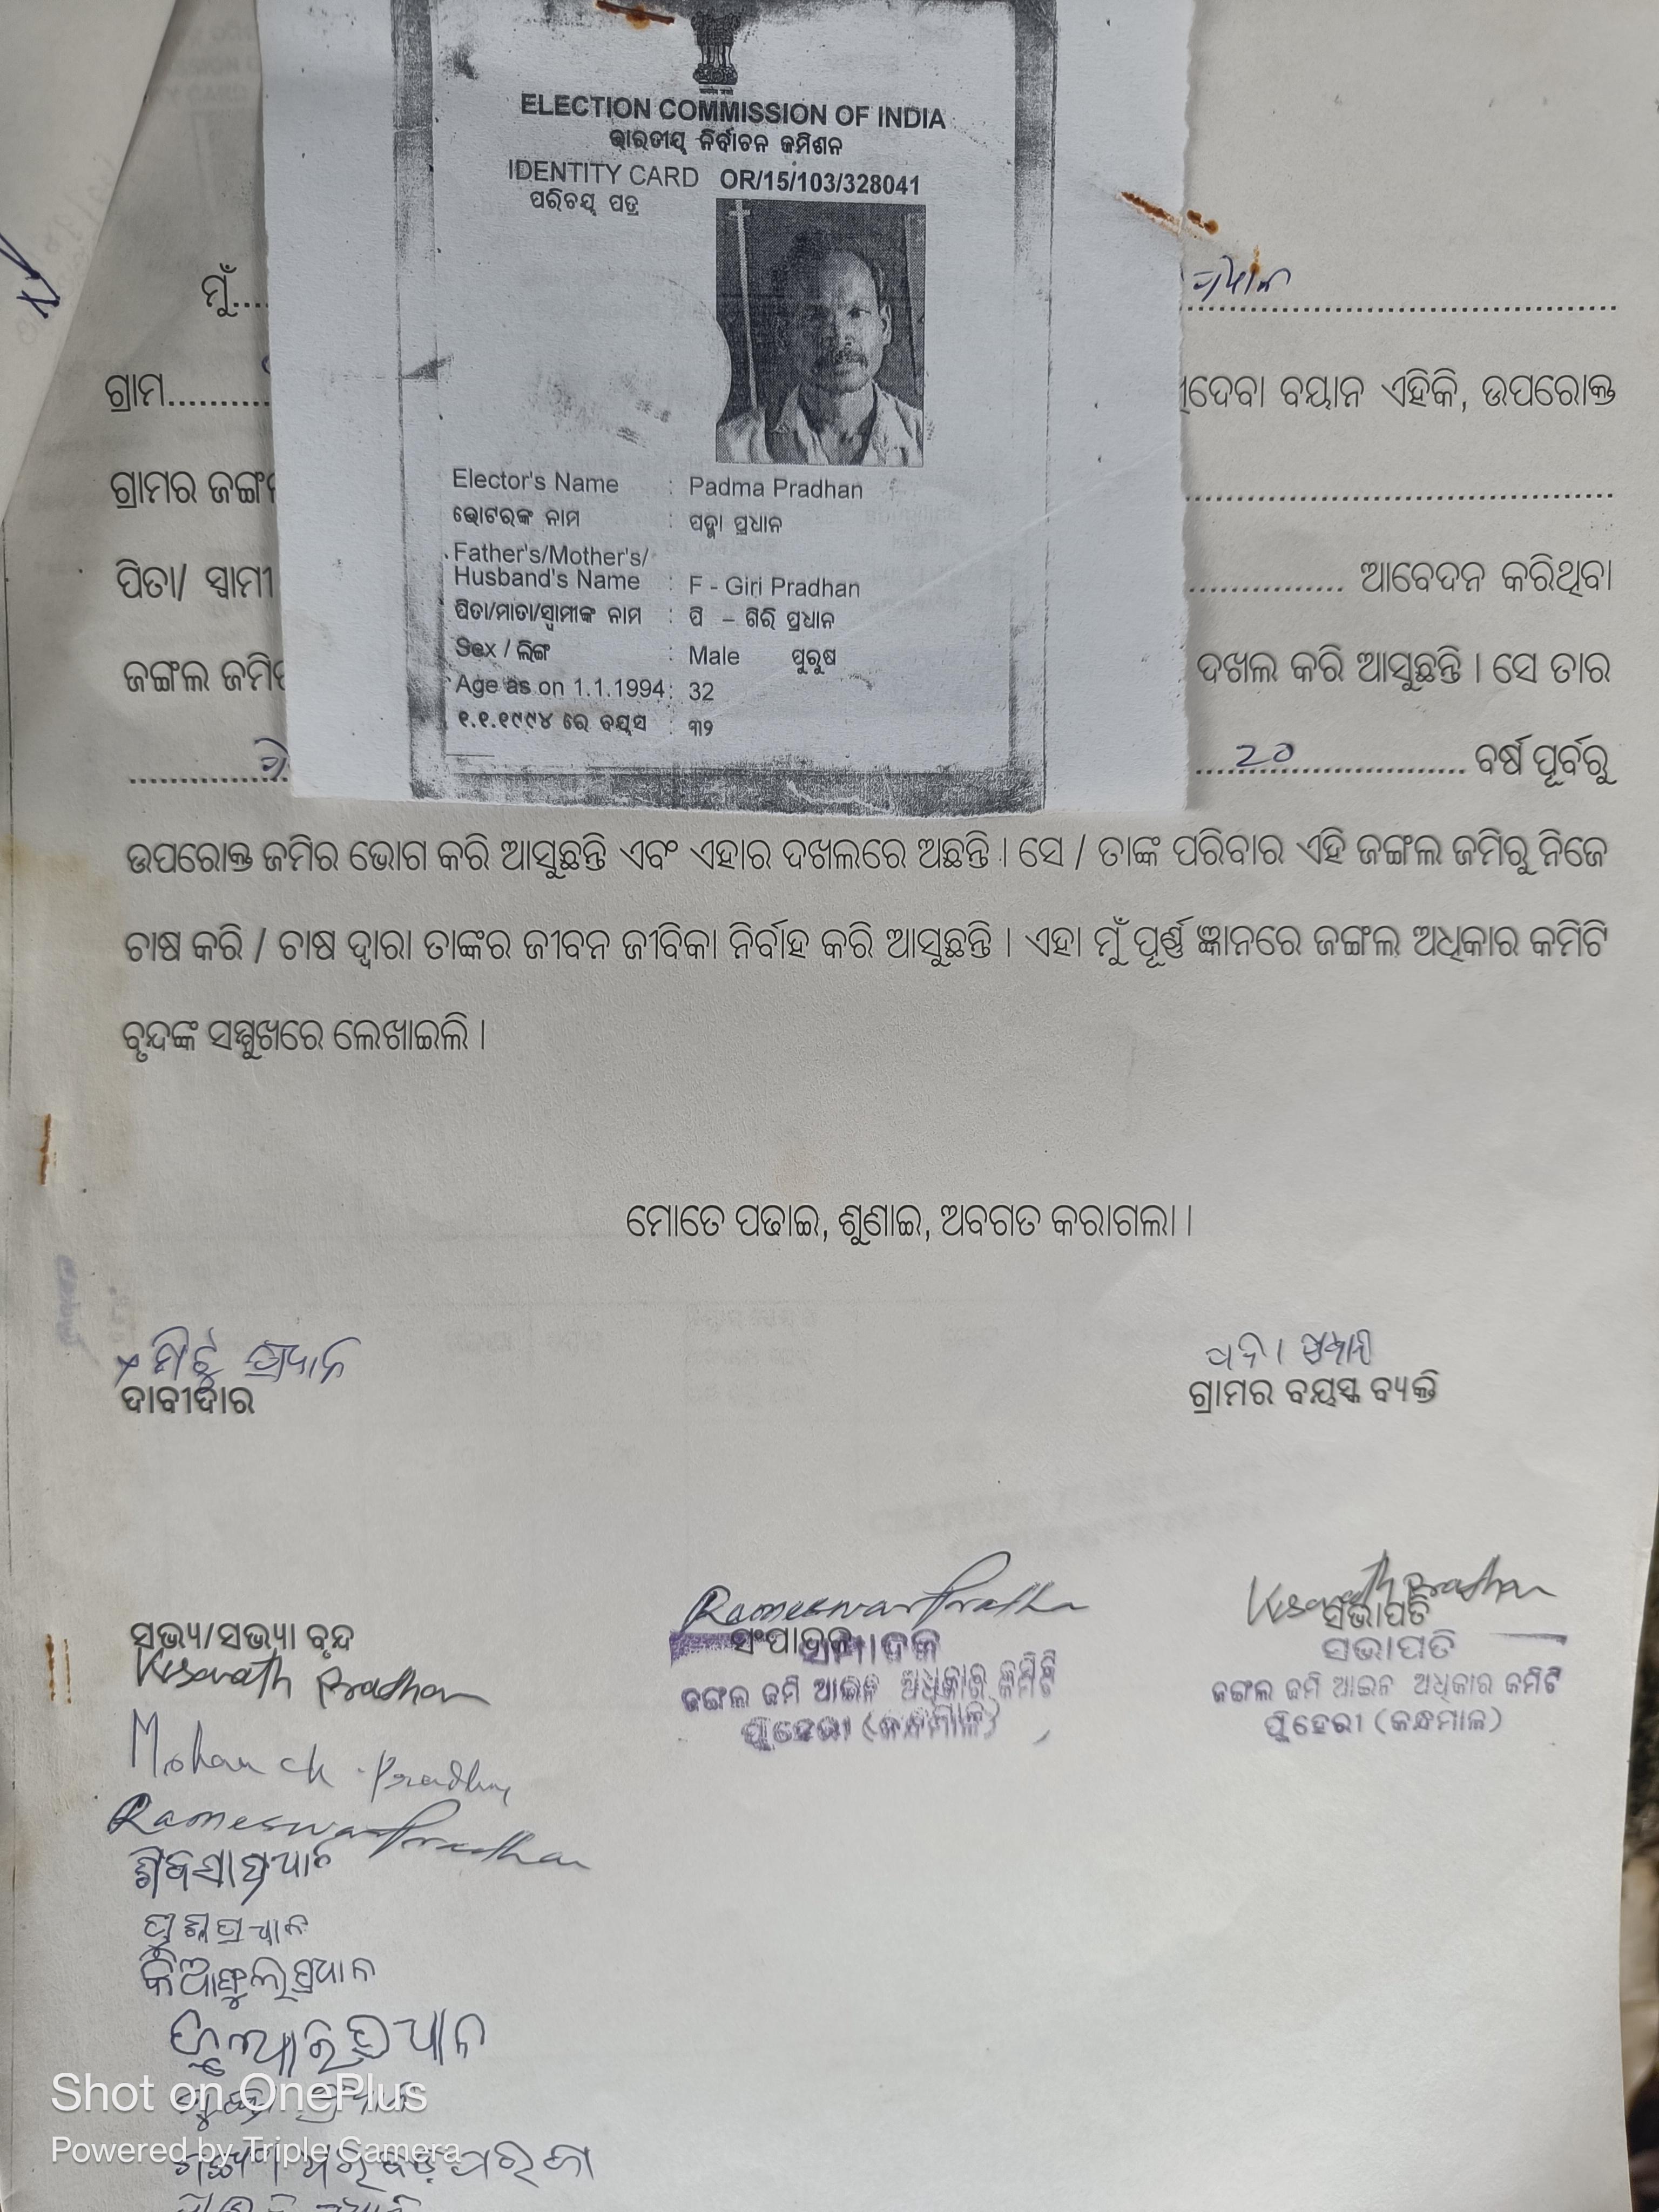 ELECTION COMMISSION OF INDIA
ଭାରତୀୟ ନିର୍ବାଚନ କମିଶନ
IDENTITY CARD OR/15/103/328041
ପରିଚୟ ପତ୍ର
Elector's Name : Padma Pradhan
ଭୋଟରଙ୍କ ନାମ : ପଦ୍ମା ପ୍ରଧାନ
Father's/Mother's/
Husband's Name : F - Giri Pradhan
ପିତା/ମାତା/ସ୍ୱାମୀଙ୍କ ନାମ : ପି – ଗିରି ପ୍ରଧାନ
Sex / ଲିଙ୍ଗ : Male ପୁରୁଷ
Age as on 1.1.1994 : 32
୧.୧.୧୯୯୪ ରେ ବୟସ : ୩୨
ମୁଁ....
ଗ୍ରାମ........... ଦେବା ବୟାନ ଏହିକି, ଉପରୋକ୍ତ
ଗ୍ରାମର
ପିତା/ ସ୍ୱାମୀ .............. ଆବେଦନ କରିଥିବା
ଜଙ୍ଗଲ ଦଖଲ କରି ଆସୁଛନ୍ତି । ସେ ତାର
20 ବର୍ଷ ପୂର୍ବରୁ
ଉପରୋକ୍ତ ଜମିର ଭୋଗ କରି ଆସୁଛନ୍ତି ଏବଂ ଏହାର ଦଖଲରେ ଅଛନ୍ତି । ସେ / ତାଙ୍କ ପରିବାର ଏହି ଜଙ୍ଗଲ ଜମିରୁ ନିଜେ
ଚାଷ କରି / ଚାଷ ଦ୍ୱାରା ତାଙ୍କର ଜୀବନ ଜୀବିକା ନିର୍ବାହ କରି ଆସୁଛନ୍ତି । ଏହା ମୁଁ ପୂର୍ଣ୍ଣ ଜ୍ଞାନରେ ଜଙ୍ଗଲ ଅଧିକାର କମିଟି
ବୃନ୍ଦଙ୍କ ସମ୍ମୁଖରେ ଲେଖାଇଲି ।
ମୋତେ ପଢାଇ, ଶୁଣାଇ, ଅବଗତ କରାଗଲା ।
ମିଟୁ ପ୍ରଧାନ
ଦାବୀଦାର
ଗ୍ରାମର ବୟସ୍କ ବ୍ୟକ୍ତି
Rameswar Pradhan
Viswanath Pradhan
ସଭ୍ୟ/ସଭ୍ୟା ବୃନ୍ଦ
ସଂପାଦକ
ସଭାପତି
ସମ୍ପାଦକ
ଜଙ୍ଗଲ ଜମି ଆଇନ ଅଧିକାର କମିଟି
ସଭାପତି
ଜଙ୍ଗଲ ଜମି ଆଇନ ଅଧିକାର କମିଟି
(କନ୍ଧମାଳ)
Viswanath Pradhan
Mohan ch. Pradhan
Rameswar Pradhan
Shot on OnePlus
Powered by Triple Camera